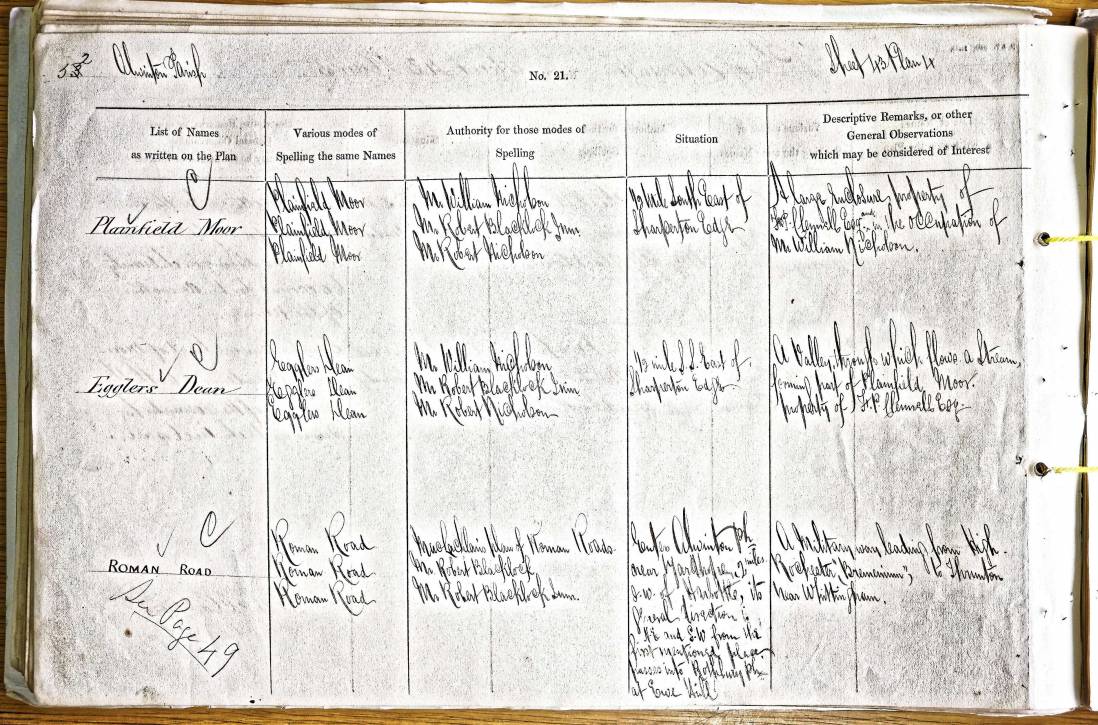 52
Alwinton Parish
No. 21.
Sheet 43 Plan 4
List of Names
as written on the Plan
Various modes of
Spelling the same Names
Authority for those modes of
Spelling
Situation
Descriptive Remarks, or other
General Observations
which may be considered of Interest
Plainfield Moor
Plainfield Moor
Plainfield Moor
Plainfield Moor
Mr. William Nicholson
Mr. Robert Blacklock Junr.
Mr. Robert Nicholson
½ mile South East of
Sharperton Edge
A large enclosure, property of
Clennell Esqr. and in the occupation of
Mr. William Nicholson.
Egglers Dean
Egglers Dean
Egglers Dean
Egglers Dean
Mr. William Nicholson
Mr. Robert Blacklock Junr
Mr. Robert Nicholson
mile S.S. East of
Sharperton Edge
A Valley, through which flows a Stream,
forming part of Plainfield Moor.
property of Clennell Esq.
ROMAN ROAD
See Page 49
Roman Road
Roman Road
Roman Road
Maclachlan's Plan of Roman Roads.
Mr. Robert Blacklock
Mr. Robert Blacklock Junr.
Enters Alwinton Ph
near miles
S.W. of its
general direction is
N.E and S.W from its
first mentioned place
passes into Rothbury Ph.
at Hill
A Military way leading from High
Rochester, "Bremenium", to Thrunton
near Whittingham.